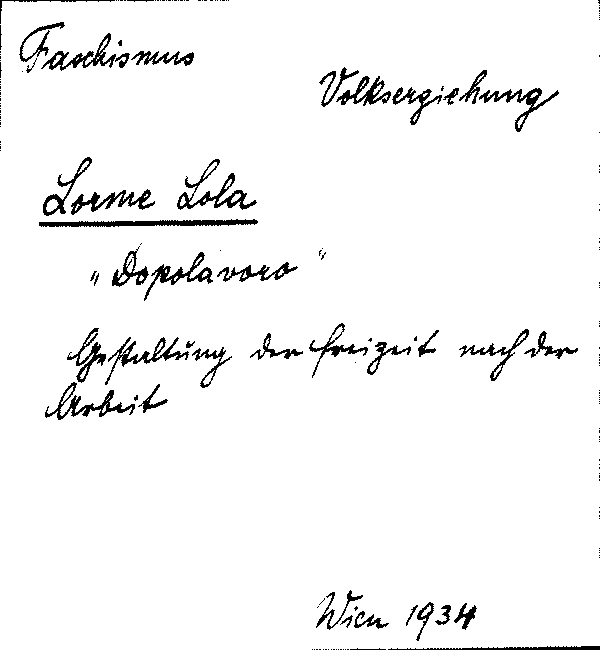 Faschismus
Volkserziehung
Lorme Lola
„Dopolavoro“
Gestaltung der Freizeit nach der
Arbeit
Wien 1934